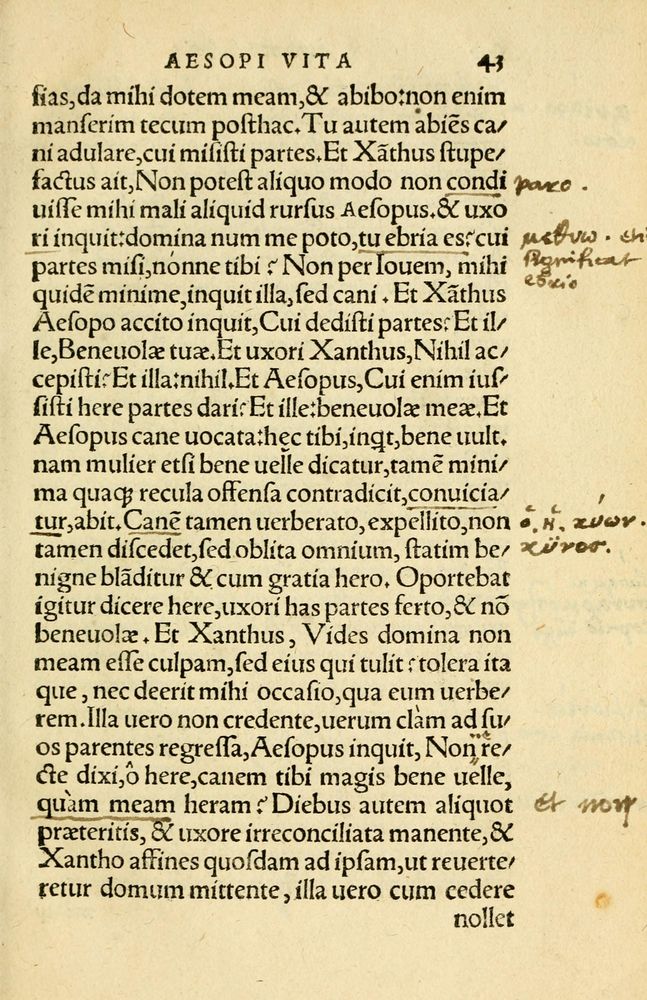 AESOPI VITA 43
ſias,da mihi dotem meam,& abibo:non enim
manſerim tecum poſthac.Tu autem abiēs ca/
ni adulare,cui miſiſti partes.Et Xāthus ſtupe/
factus ait,Non poteſt aliquo modo non condi
uiſſe mihi mali aliquid rurſus Aeſopus.& uxo
ri inquit:domina num me poto,tu ebria es?cui
partes miſi,nónne tibi ? Non per Iouem, mihi
quidē minime,inquit illa,ſed cani . Et Xāthus
Aeſopo accito inquit,Cui dediſti partes?Et il/
le,Beneuolæ tuæ.Et uxori Xanthus,Nihil ac/
cepiſti?Et illa:nihil.Et Aeſopus,Cui enim iuſ/
ſiſti here partes dari?Et ille:beneuolæ meæ.Et
Aeſopus cane uocata:hęc tibi,inqt,bene uult.
nam mulier etſi bene uelle dicatur,tamē mini/
ma quaqꝫ recula offenſa contradicit,conuicia/
tur,abit.Canē tamen uerberato,expellito,non
tamen diſcedet,ſed oblita omnium, ſtatim be/
nigne blāditur & cum gratia hero. Oportebat
igitur dicere here,uxori has partes ferto,& nō
beneuolæ. Et Xanthus, Vides domina non
meam eſſe culpam,ſed eius qui tulit ? tolera ita
que , nec deerit mihi occaſio,qua eum uerbe/
rem.Illa uero non credente,uerum clàm ad ſu/
os parentes regreſſa,Aeſopus inquit, Non re/
cte dixi,ô here,canem tibi magis bene uelle,
quàm meam heram ? Diebus autem aliquot
præteritis, & uxore irreconciliata manente,&
Xantho affines quoſdam ad ipſam,ut reuerte/
retur domum mittente , illa uero cum cedere
nollet
paro .
μεθύω .
significat
ebrio
ὁ. ἡ. κύων.
κῦνος.
et